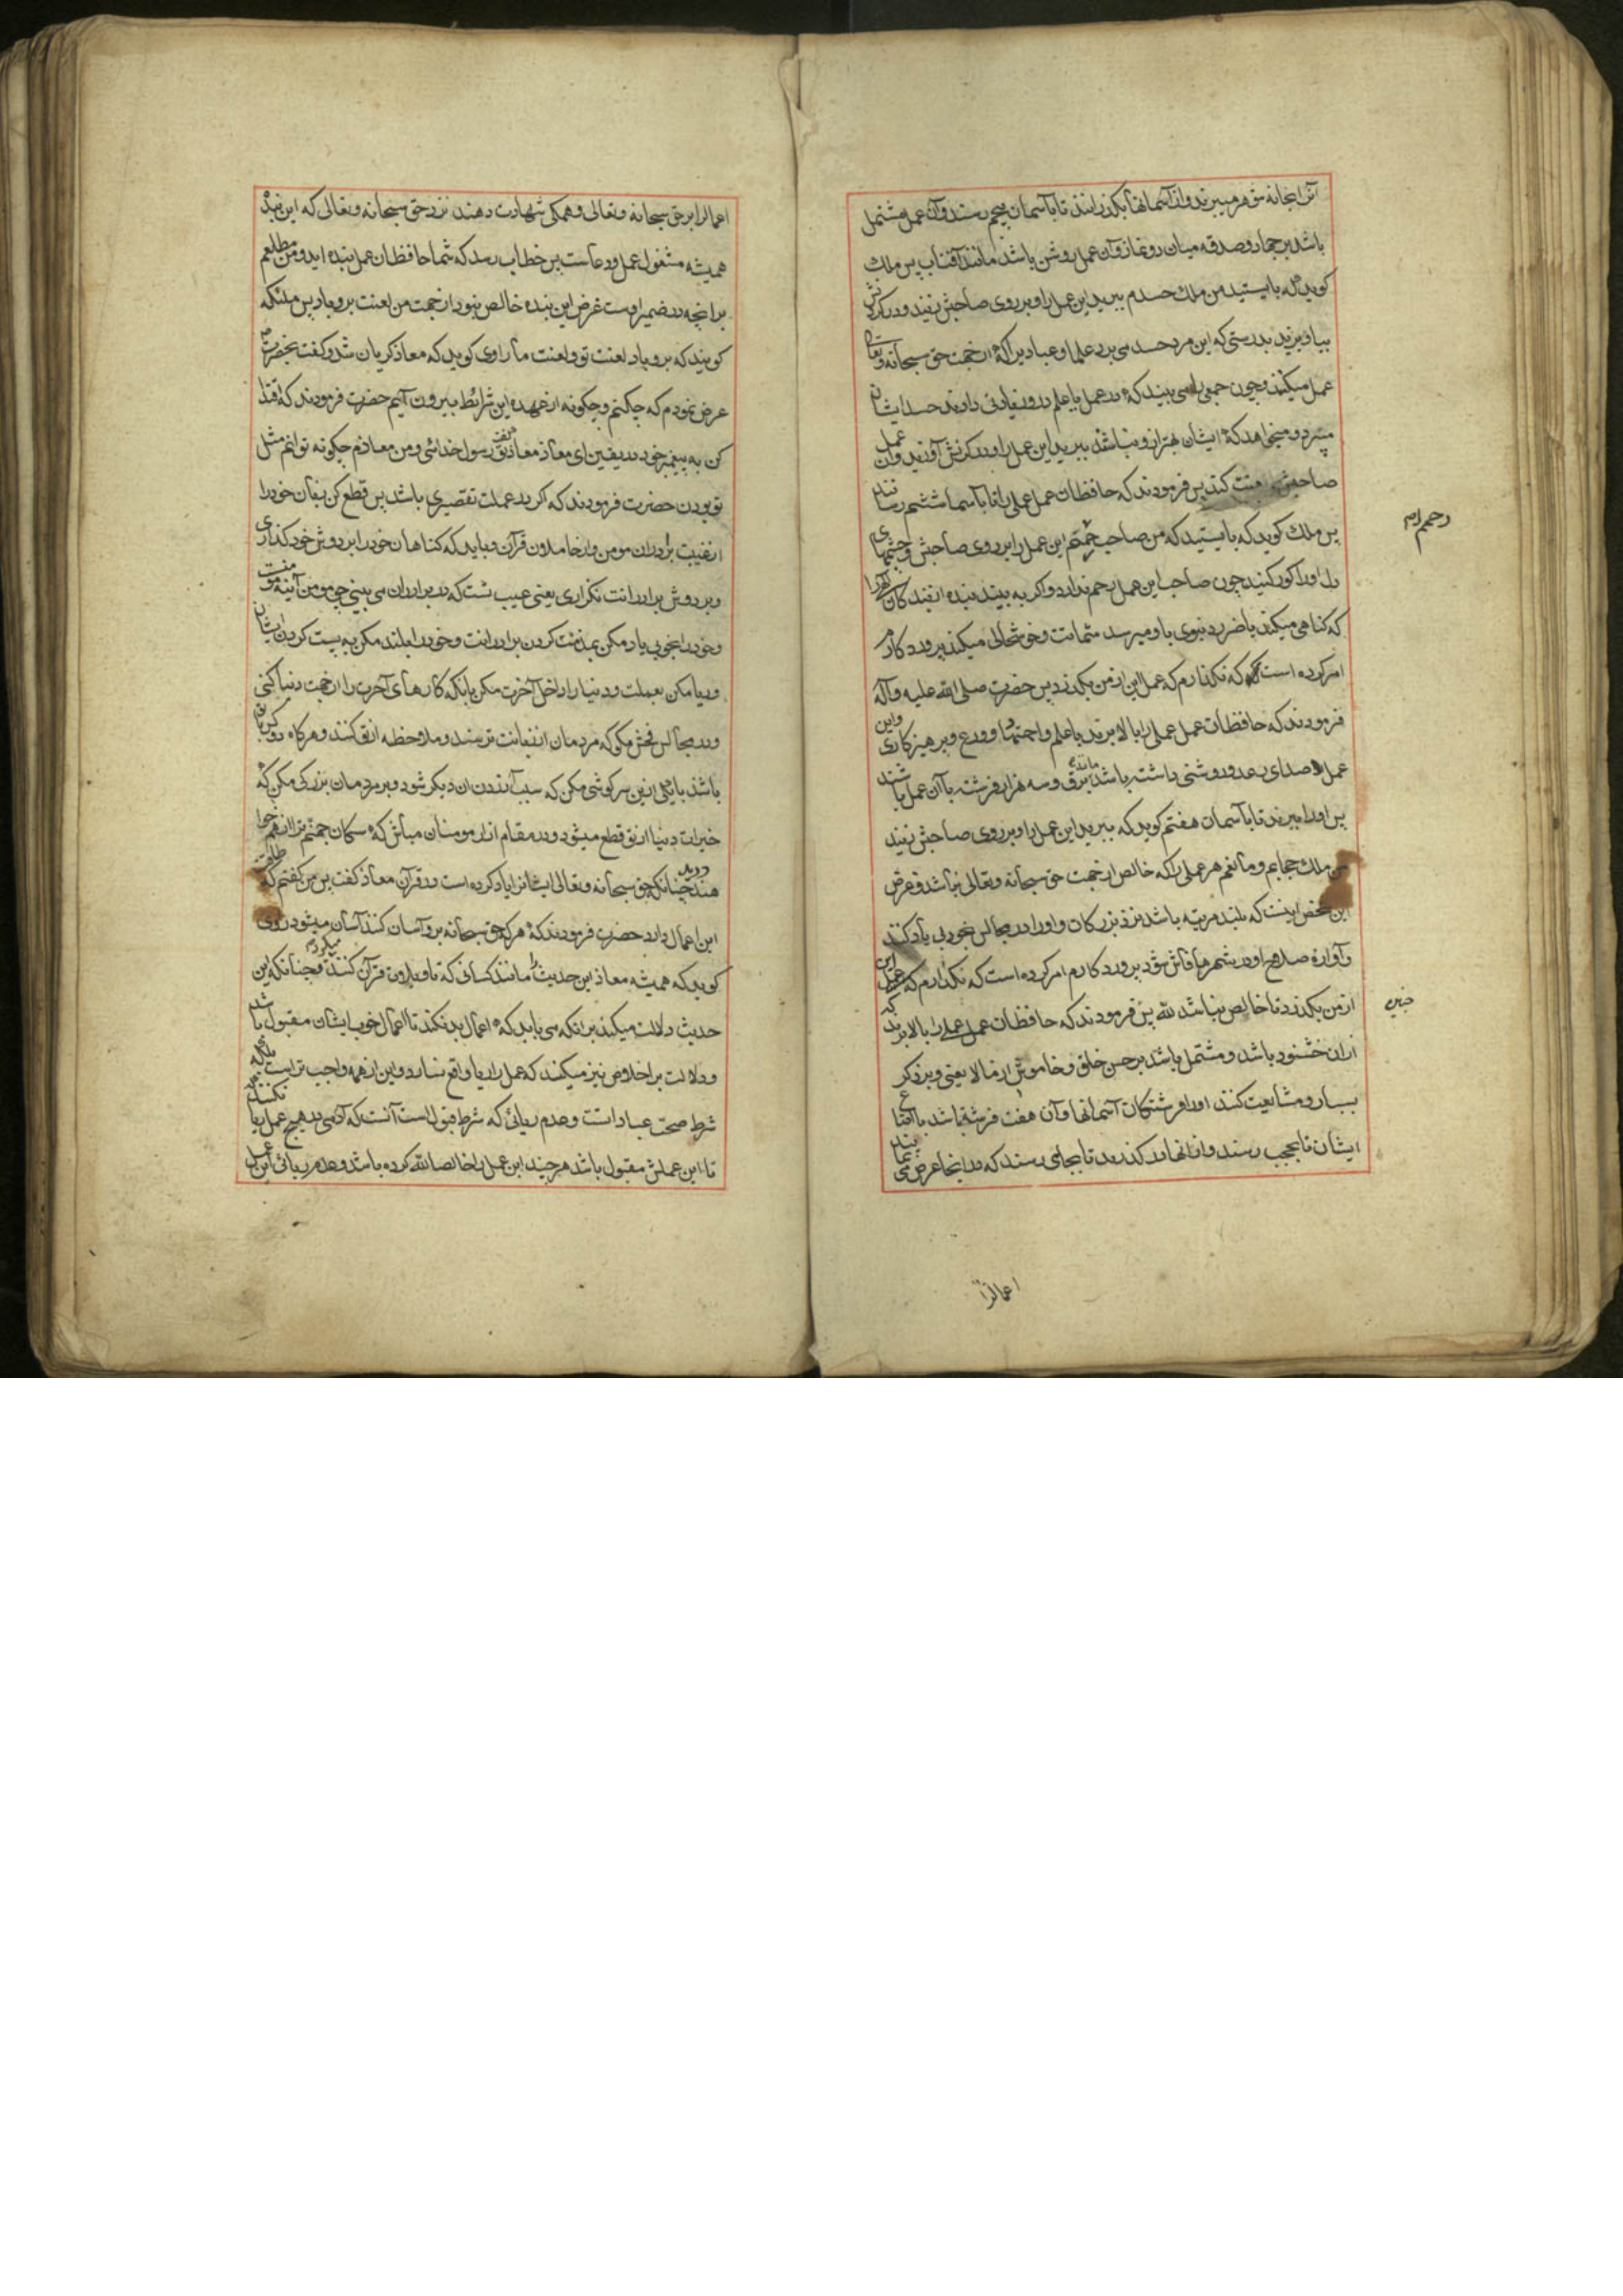 آنرا بخانه شوهر میبرند و از آسمانها بگذرانند تا بآسمان پنجم رسند و آن عمل مشتمل
باشد بر جهاد و صدقه میان دو نماز و آن عمل روشن باشد مانند آفتاب پس ملک
گوید که بایستید من ملک حسدم ببرید این عمل را و بر روی صاحبش زنید و در گردنش
بیاویزید بدرستی که این مرد حسد می برد علما و عباد را که از جهت حق سبحانه و تعالی
عمل میکنند و چون جمعی را می بیند که در عمل یا علم درو زیادتی دارند حسد ایشان
میبرد و میخواهد که ایشان بهتر ازو نباشند ببرید این عمل را و در گردنش آورید و آن عمل
صاحبش لعنت کند پس فرمودند که حافظان عمل عملی را تا بآسمان ششم رسانند
پس ملک گوید که بایستید که من صاحب رحمتم این عمل را بر روی صاحبش و چشمهای
دل او را کور کنید چون صاحب این عمل رحم ندارد و اگر به بیند بنده از بندگان خدا را
که گناهی میکند یا ضرر دنیوی باو میرسد شماتت و خوشحالی میکند پروردگارم
امر کرده است که نگذارم که عمل این از من بگذرد پس حضرت صلی الله علیه و آله
فرمودند که حافظان عمل عملی را بالا برند با علم و اجتهاد و ورع و پرهیزکاری و این
عمل صدای رعد و روشنی داشته باشد مانند برق و سه هزار فرشته با آن عمل باشند
پس او را میبرند تا بآسمان هفتم گوید که ببرید این عمل را و بر روی صاحبش زنید
من ملک حجابم و مانعم هر عملی را که خالص از جهت حق سبحانه و تعالی نباشد و غرض
این شخص اینست که بلند مرتبه باشد نزد بزرگان و او را در مجالس بخوبی یاد کنند
و آوازه صلاح او در شهرها فاش شود پروردگارم امر کرده است که نگذارم که این عمل
از من بگذرد تا خالص نباشد لله پس فرمودند که حافظان عمل عملی را بالا برند که
ازان خشنود باشد و مشتمل باشد بر حسن خلق و خاموشی از ما لا یعنی و بر ذکر
بسیار و مشایعت کنند او را فرشتگان آسمانها و آن هفت فرشته باشد با اتباع
ایشان تا بحجب رسند و ازانها درگذرند تا بجای رسند که در اینجا عرض می نمایند
رحم رام
اعمالرا
اعمالرا بر حق سبحانه و تعالی و همگی شهادت دهند نزد حق سبحانه و تعالی که این بنده
همیشه مشغول عمل و دعاست پس خطاب رسد که شما حافظان عمل بنده اید و من مطلعم
برانچه در ضمیر اوست غرض این بنده خالص نبود از جهت من لعنت برو باد پس ملئکه
گویند که برو باد لعنت تو و لعنت ما راوی گوید که معاذ گریان شد و گفت بحضرت
عرض نمودم که چکنم و چگونه از عهده این شرائط بیرون آیم حضرت فرمودند که اقتدا
کن به پیغمبر خود در یقین ای معاذ معاذ گفت تو رسول خدائی و من معاذم چگونه توانم مثل
تو بودن حضرت فرمودند که اگر در عملت تقصیری باشد پس قطع کن زبان خود را
از غیبت برادران مومن و از حاملان قرآن و باید که گناهان خود را بر دوش خود گذاری
و بر دوش برادرانت نگذاری یعنی عیب تست که در برادران می بینی چه مومن آینه مومنست
و خود را بخوبی یاد مکن بمذمت کردن برادرانت و خود را بلند مکن به پست کردن ایشان
و ریا مکن بعملت و دنیا را داخل آخرت مکن بآنکه کارهای آخرت را از جهت دنیا کنی
و در مجالس فحش مگو که مردمان از زبانت ترسند و ملاحظه از تو کنند و هرگاه دو کس با تو
باشند با یکی ازین سرگوشی مکن که سبب آزردن آن دیگر شود و بر مردمان بزرگی مکن که
خیرات دنیا از تو قطع میشود و در مقام آزار مومنان مباش که سگان جهنم ترا از هم خواهند
درید چنانکه حق سبحانه و تعالی ایشانرا یاد کرده است در قرآن معاذ گفت پس من گفتم که طاقت
این اعمال دارد حضرت فرمودند که هر که حق سبحانه برو آسان کند آسان میشود راوی
گوید که همیشه معاذ این حدیث را مانند کسانی که تلاوت قرآن کنند میکرد و چنانکه این
حدیث دلالت میکند برانکه می باید که اعمال بد نکند تا اعمال خوب ایشان مقبول باشد
و دلالت بر اخلاص نیز میکند که عمل را بریا واقع نسازد و این از همه واجب تر است بلکه
شرط صحت عباداتست و عدم ریائی که شرط قبولست آنست که آدمی در هیچ عمل ریا نکند
تا این عملش مقبول باشد هر چند این عمل را خالصا لله کرده باشد و عدم ریائی این عمل